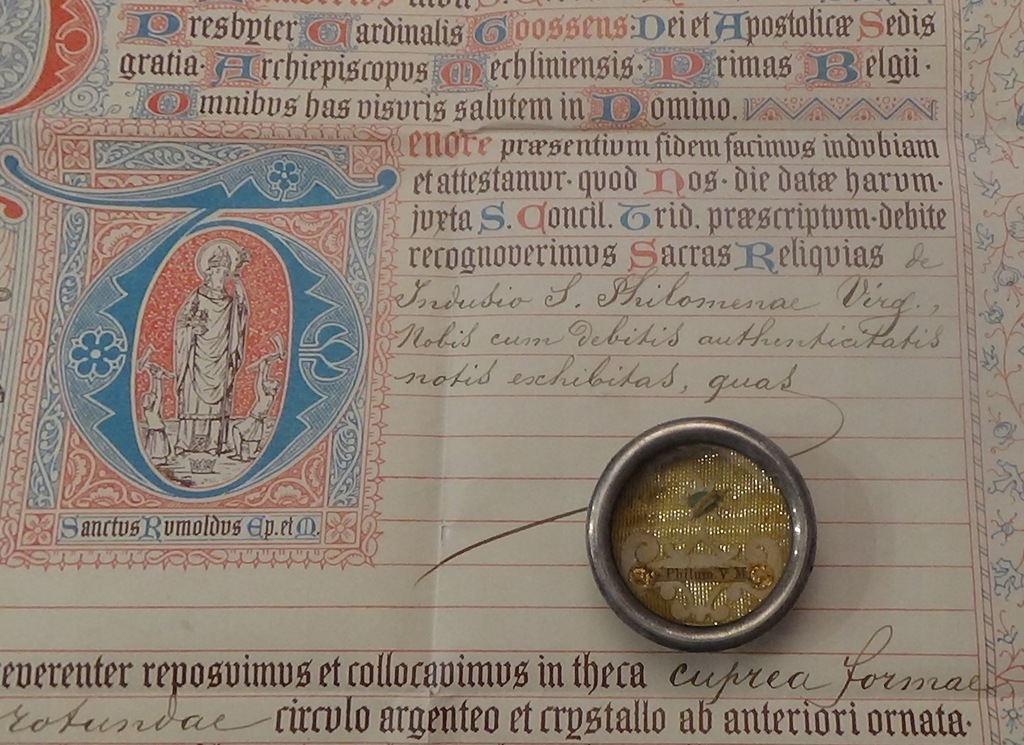 Presbyter Cardinalis Goossens Dei et Apostolicæ Sedis
gratia · Archiepiscopvs Mechliniensis · Primas Belgii ·
Omnibvs has visvris salvtem in Domino.
Tenore præsentivm fidem facimvs indvbiam
et attestamvr · qvod Nos · die datæ harvm ·
jvxta S. Concil. Trid. præscriptvm · debite
recognoverimvs Sacras Reliqvias de
Indusio S. Philomenae Virg.,
Nobis cum debitis authenticitatis
notis exhibitas, quas
Sanctvs Rvmoldvs Ep. et M.
Philum. V. M
reverenter reposvimvs et collocavimvs in theca cuprea formae
rotundae circvlo argenteo et crystallo ab anteriori ornata ·